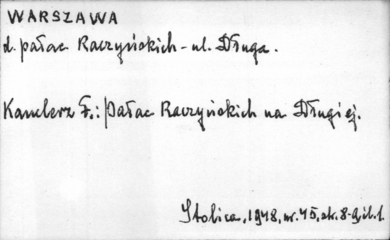 WARSZAWA
d. pałac Raczyńskich - ul. Długa.
Kanclerz F.: Pałac Raczyńskich na Długiej.
Stolica, 1948, nr. 45, str. 8-9, il. 1.